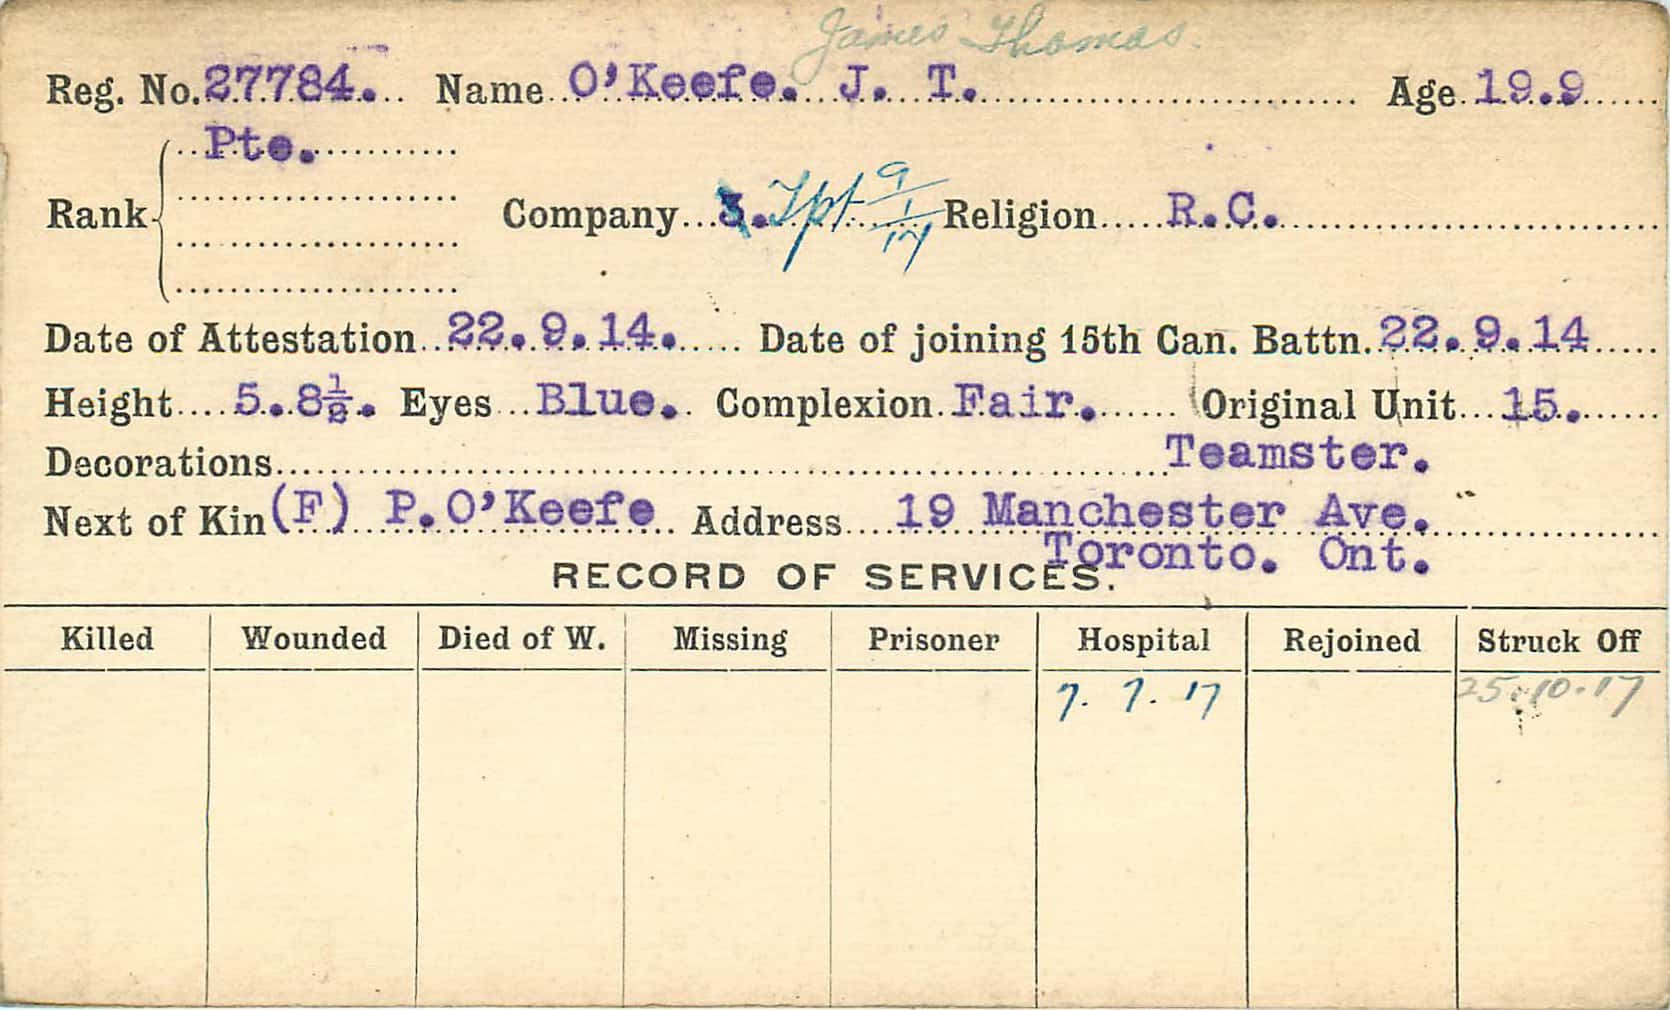 James Thomas.
Reg. No. 27784. Name O'Keefe. J. T. Age 19.9
Rank Pte.
Company 3. Tpt 9/1/17 Religion R.C.
Date of Attestation 22.9.14. Date of joining 15th Can. Battn. 22.9.14
Height 5.8½. Eyes Blue. Complexion Fair. Original Unit 15.
Decorations Teamster.
Next of Kin (F) P.O'Keefe Address 19 Manchester Ave.
Toronto. Ont.
RECORD OF SERVICES.
Killed Wounded Died of W. Missing Prisoner Hospital Rejoined Struck Off
7. 7. 17 25.10.17